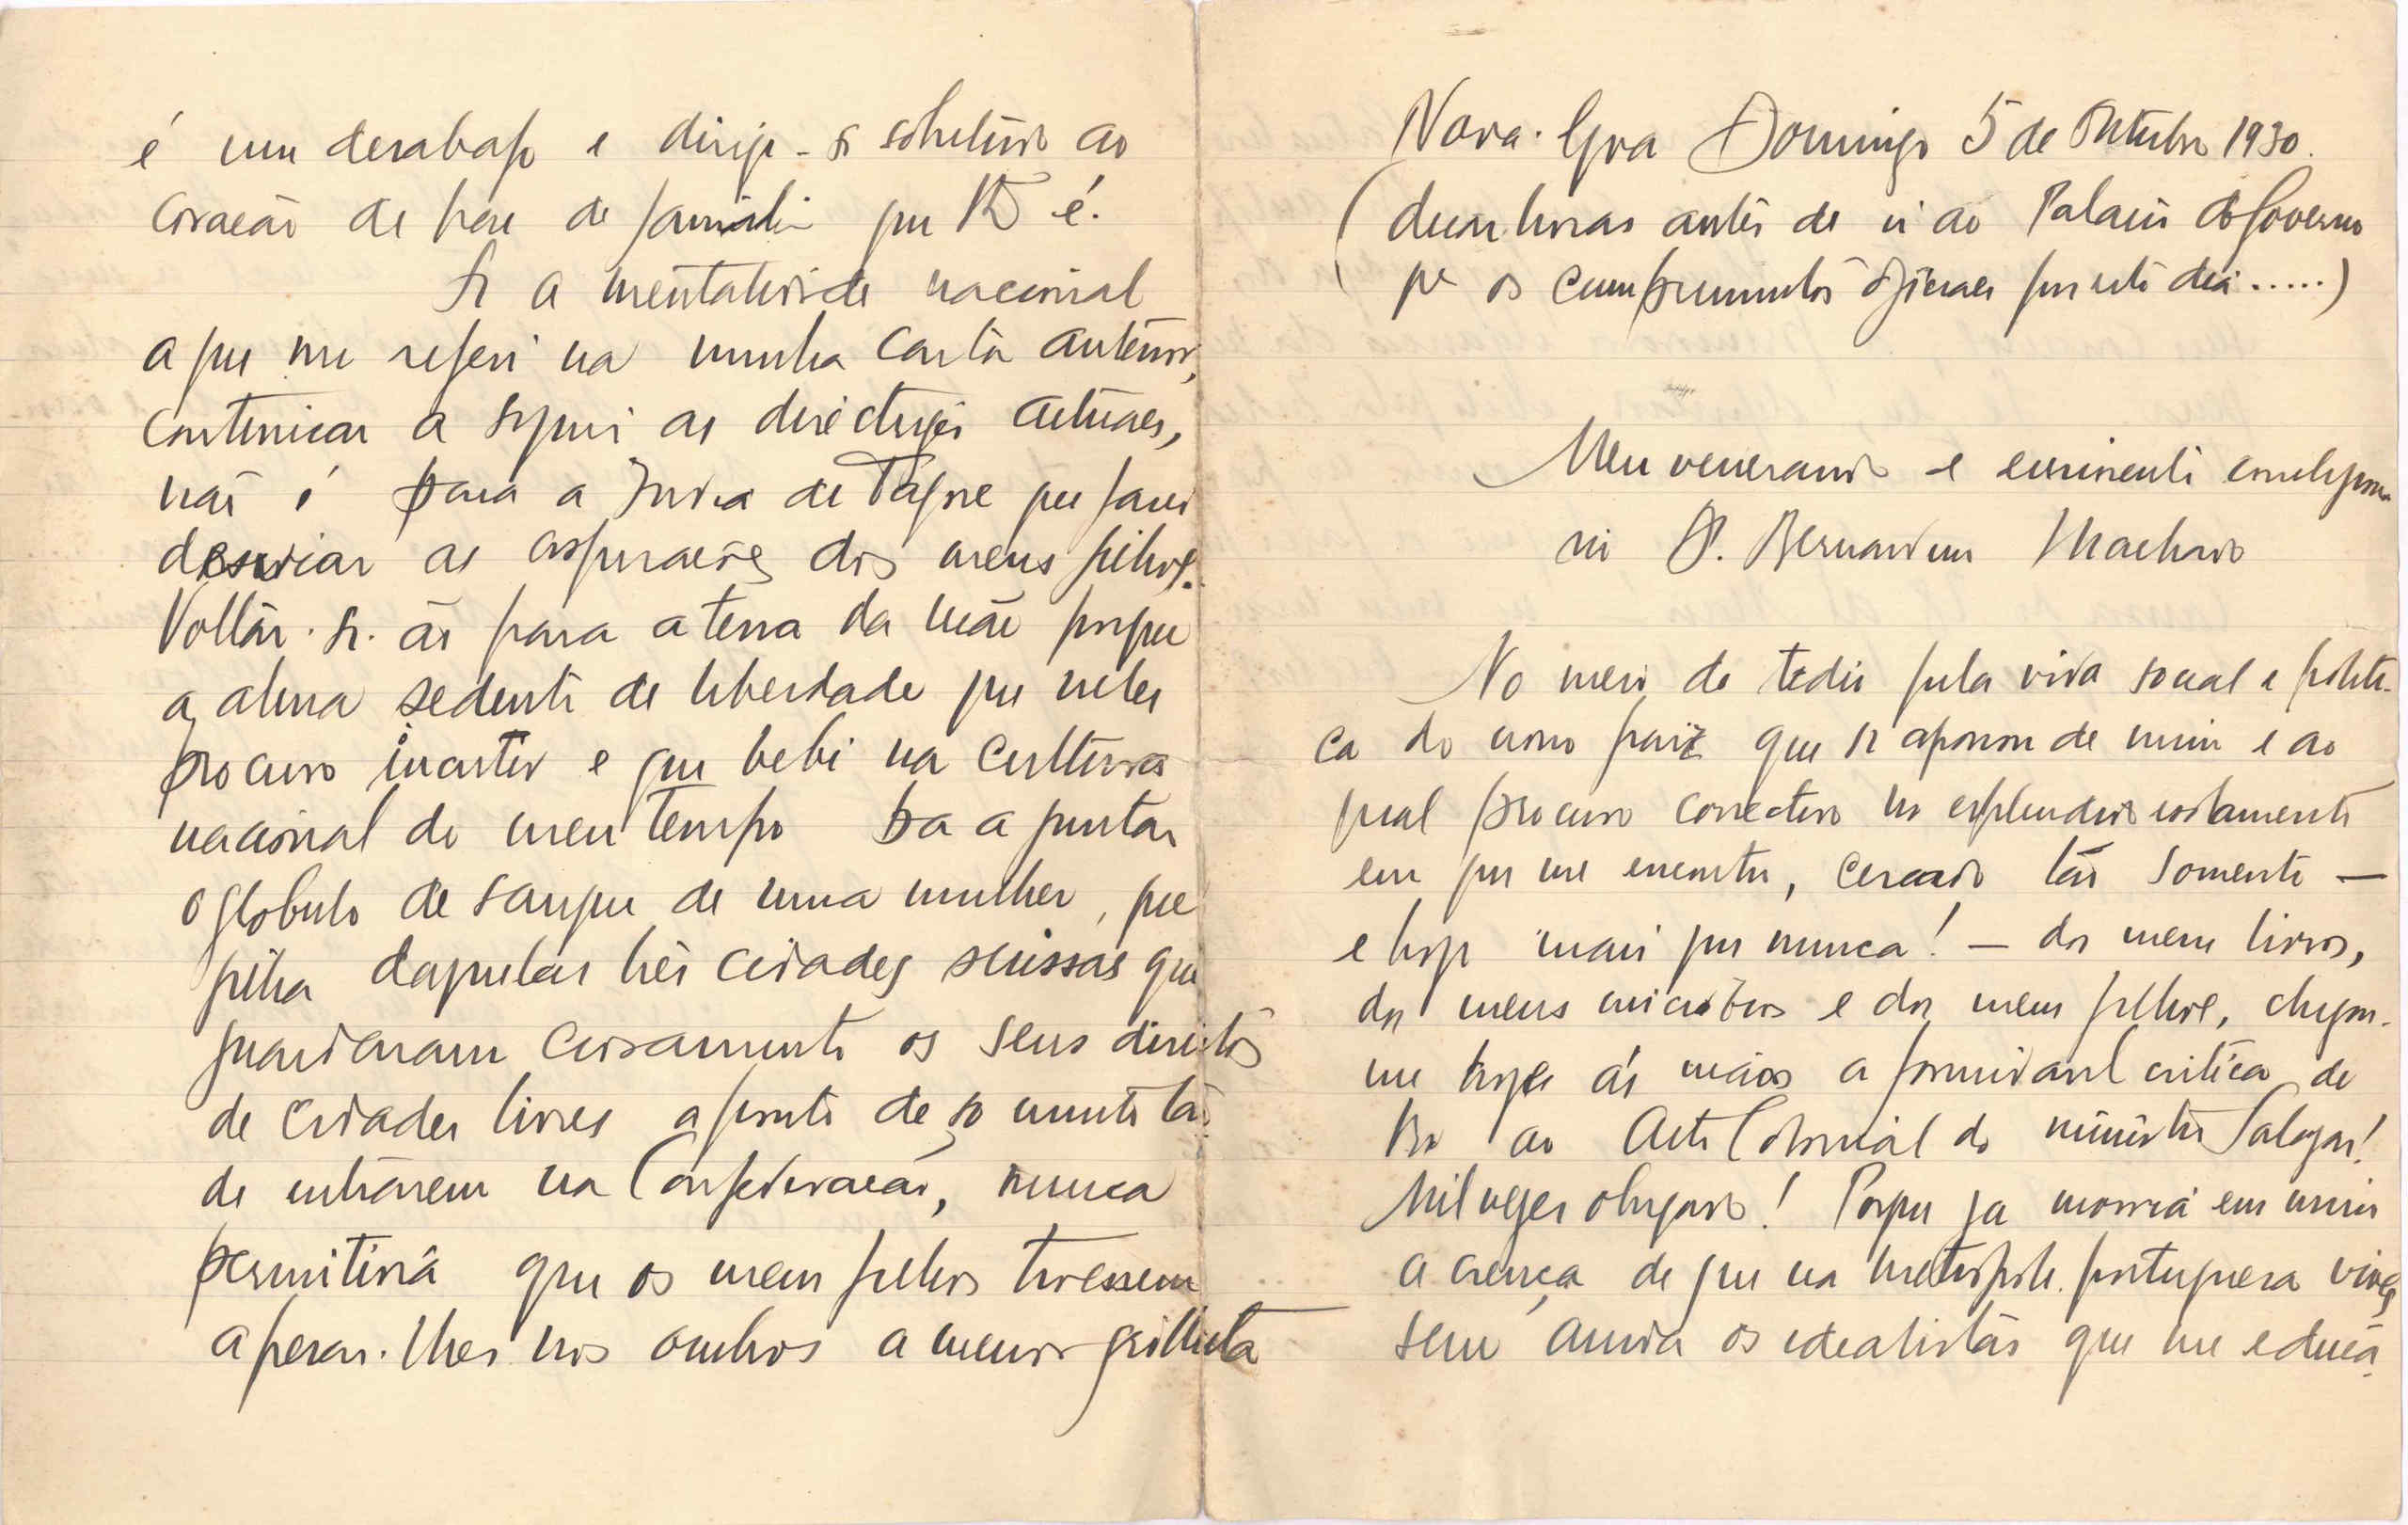 é um desabafo e dirige-se sobretudo ao
coração de pae de familia que VExª é.
Se a mentalidade nacional
a que me referi na minha carta anterior,
continuar a seguir as directrizes actuaes,
não é para a India de Tagore que farei
desviar as aspirações dos meus filhos.
Voltar-se-ão para a terra da mãe porque
a alma sedenta de liberdade que neles
procuro incutir e que bebi na cultura
nacional do meu tempo a juntar
o globulo de sangue de uma mulher, que
filha daquelas três cidades suissas que
guardaram ciosamente os seus direitos
de cidades livres a ponto de somente
de entrarem na Confederação, nunca
permitirá que os meus filhos tivessem
a pesar-lhes nos ombros a menor grilheta
Nova-Goa Domingo 5 de Outubro 1930.
(duas horas antes de ir ao Palacio do Governo
pª os cumprimentos oficiaes por este dia.....)
Meu venerando e eminente correligiona
rio Dr. Bernardino Machado
No meio do tedio pela vida social e politi-
ca do nosso paiz que se apossou de mim e ao
qual procuro correctivo no esplendido isolamento
em que me encontro, cercado tão somente —
e hoje mais que nunca! — dos meus livros,
dos meus microbios e dos meus filhos, chegou-
me hoje ás mãos a formidavel critica de
ao Acto Colonial do ministro Salazar!
Mil vezes obrigado! Porque ja morria em mim
a crença de que na metropole portugueza vives
sem ainda os idealistas que me educa-